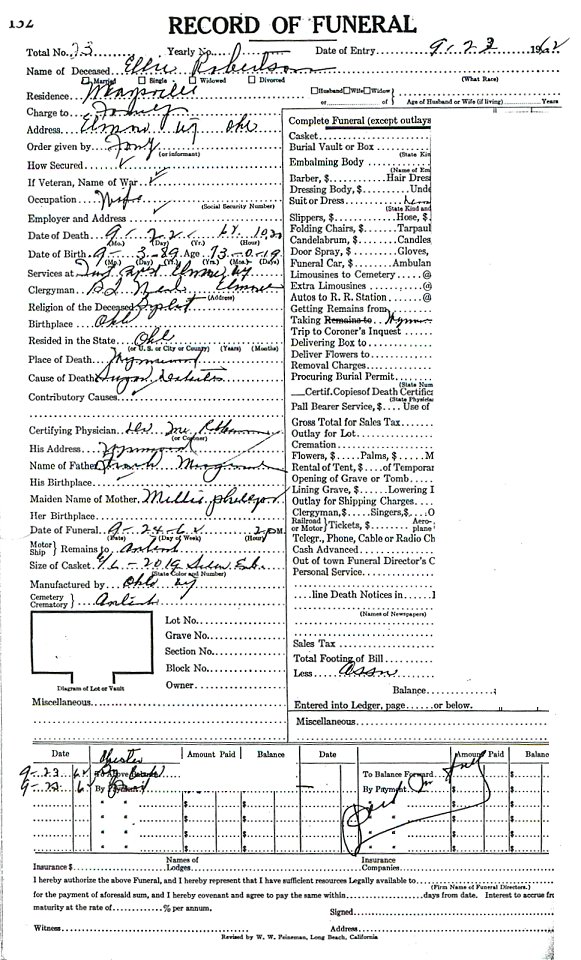 132
RECORD OF FUNERAL
Total No. 73 Yearly No. Date of Entry 9-23 1962
Name of Deceased Robertson
Married Single Widowed Divorced (What Race)
Residence Husband Wife Widow
or of Age of Husband or Wife (if living) Years
Charge to Family
Address
Order given by
(or informant)
How Secured
If Veteran, Name of War
Occupation
(Social Security Number)
Employer and Address
Date of Death 9-22-62
(Mo.) (Day) (Yr.) (Hour)
Date of Birth 9-3-89 Age 73-0-19
(Mo.) (Day) (Yr.) (Yrs.) (Months) (Days)
Services at
Clergyman
(Address)
Religion of the Deceased
Birthplace Okla
Resided in the State Okla
(or U. S. or City or County) (Years) (Months)
Place of Death Wynnewood
Cause of Death Sugar Diabetes
Contributory Causes
Certifying Physician
(or Coroner)
His Address Wynnewood
Name of Father
His Birthplace
Maiden Name of Mother
Her Birthplace
Date of Funeral 9-24-62 2 P.M.
(Date) (Day of Week) (Hour)
Motor Ship } Remains to Antioch
Size of Casket
(State Color and Number)
Manufactured by
Cemetery Crematory } Antioch
Lot No.
Grave No.
Section No.
Block No.
Owner
Diagram of Lot or Vault
Miscellaneous
Complete Funeral (except outlays
Casket
Burial Vault or Box
(State Kin
Embalming Body
(Name of Em
Barber, $ Hair Dres
Dressing Body, $ Unde
Suit or Dress
(State Kind and
Slippers, $ Hose, $
Folding Chairs, $ Tarpaul
Candelabrum, $ Candles
Door Spray, $ Gloves,
Funeral Car, $ Ambulan
Limousines to Cemetery @
Extra Limousines @
Autos to R. R. Station @
Getting Remains from
Taking Remains to
Trip to Coroner's Inquest
Delivering Box to
Deliver Flowers to
Removal Charges
Procuring Burial Permit
(State Num
Certif. Copies of Death Certific
(State Physicia
Pall Bearer Service, $ Use of
Gross Total for Sales Tax
Outlay for Lot
Cremation
Flowers, $ Palms, $ M
Rental of Tent, $ of Temporar
Opening of Grave or Tomb
Lining Grave, $ Lowering I
Outlay for Shipping Charges
Clergyman, $ Singers, $ O
Railroad or Motor } Tickets, $ Aero-plane
Telegr., Phone, Cable or Radio Ch
Cash Advanced
Out of town Funeral Director's C
Personal Service
line Death Notices in
(Names of Newspapers)
Sales Tax
Total Footing of Bill
Less Assn
Balance
Entered into Ledger, page or below.
Miscellaneous
Date Amount Paid Balance Date Amount Paid Balanc
9-23 62 To Above Balance To Balance Forward
9-23 6 By By Payment
Insurance $ Names of Lodges Insurance Companies
I hereby authorize the above Funeral, and I hereby represent that I have sufficient resources Legally available to
(Firm Name of Funeral Directors.)
for the payment of aforesaid sum, and I hereby covenant and agree to pay the same within days from date. Interest to accrue fr
maturity at the rate of % per annum.
Signed
Witness Address
Revised by W. W. Feineman, Long Beach, California